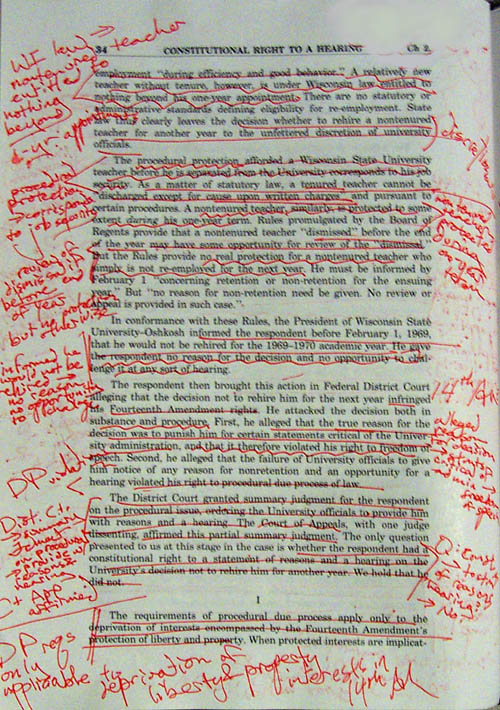 34 CONSTITUTIONAL RIGHT TO A HEARING Ch 2.
employment "during efficiency and good behavior." A relatively new
teacher without tenure, however, is under Wisconsin law entitled to
nothing beyond his one-year appointment. There are no statutory or
administrative standards defining eligibility for re-employment. State
law thus clearly leaves the decision whether to rehire a nontenured
teacher for another year to the unfettered discretion of university
officials.
The procedural protection afforded a Wisconsin State University
teacher before he is separated from the University corresponds to his job
security. As a matter of statutory law, a tenured teacher cannot be
"discharged except for cause upon written charges" and pursuant to
certain procedures. A nontenured teacher, similarly, is protected to some
extent during his one-year term. Rules promulgated by the Board of
Regents provide that a nontenured teacher "dismissed" before the end
of the year may have some opportunity for review of the "dismissal."
But the Rules provide no real protection for a nontenured teacher who
simply is not re-employed for the next year. He must be informed by
February 1 "concerning retention or non-retention for the ensuing
year." But "no reason for non-retention need be given. No review or
appeal is provided in such case."
In conformance with these Rules, the President of Wisconsin State
University-Oshkosh informed the respondent before February 1, 1969,
that he would not be rehired for the 1969-1970 academic year. He gave
the respondent no reason for the decision and no opportunity to chal-
lenge it at any sort of hearing.
The respondent then brought this action in Federal District Court
alleging that the decision not to rehire him for the next year infringed
his Fourteenth Amendment rights. He attacked the decision both in
substance and procedure. First, he alleged that the true reason for the
decision was to punish him for certain statements critical of the Univer-
sity administration, and that it therefore violated his right to freedom of
speech. Second, he alleged that the failure of University officials to give
him notice of any reason for nonretention and an opportunity for a
hearing violated his right to procedural due process of law.
The District Court granted summary judgment for the respondent
on the procedural issue, ordering the University officials to provide him
with reasons and a hearing. The Court of Appeals, with one judge
dissenting, affirmed this partial summary judgment. The only question
presented to us at this stage in the case is whether the respondent had a
constitutional right to a statement of reasons and a hearing on the
University's decision not to rehire him for another year. We hold that he
did not.
I
The requirements of procedural due process apply only to the
deprivation of interests encompassed by the Fourteenth Amendment's
protection of liberty and property. When protected interests are implicat-
WI law
nontenured teacher
entitled to
nothing
beyond
1-yr appointment
procedural
protection
to job security
review of
dismissal if
before end
of year
but no
otherwise
informed he
would not be
rehired
no reason
no opportunity
DP violat
Dist. Ct.
summary
on procedural
provide w/
hearing
Ct App
affirmed
nontenured
teacher
protected
during
one yr
term
14th Am
alleged
freedom
of
speech
Q: Const.
of reasons
hearing?
No
DP reqs
only
applicable to deprivation of
liberty & property
interests in
14th Am